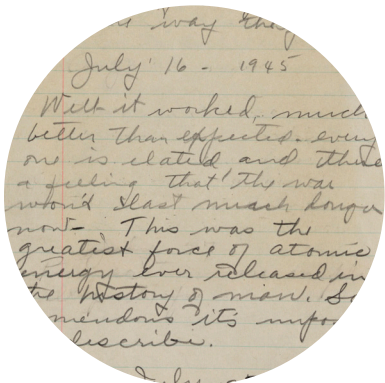 way they
July 16 - 1945
Well it worked, much
better than expected. every
one is elated and there
a feeling that the war
won't last much longer
now - This was the
greatest force of atomic
energy ever released in
the history of man. So
mendous its impo
describe.
July